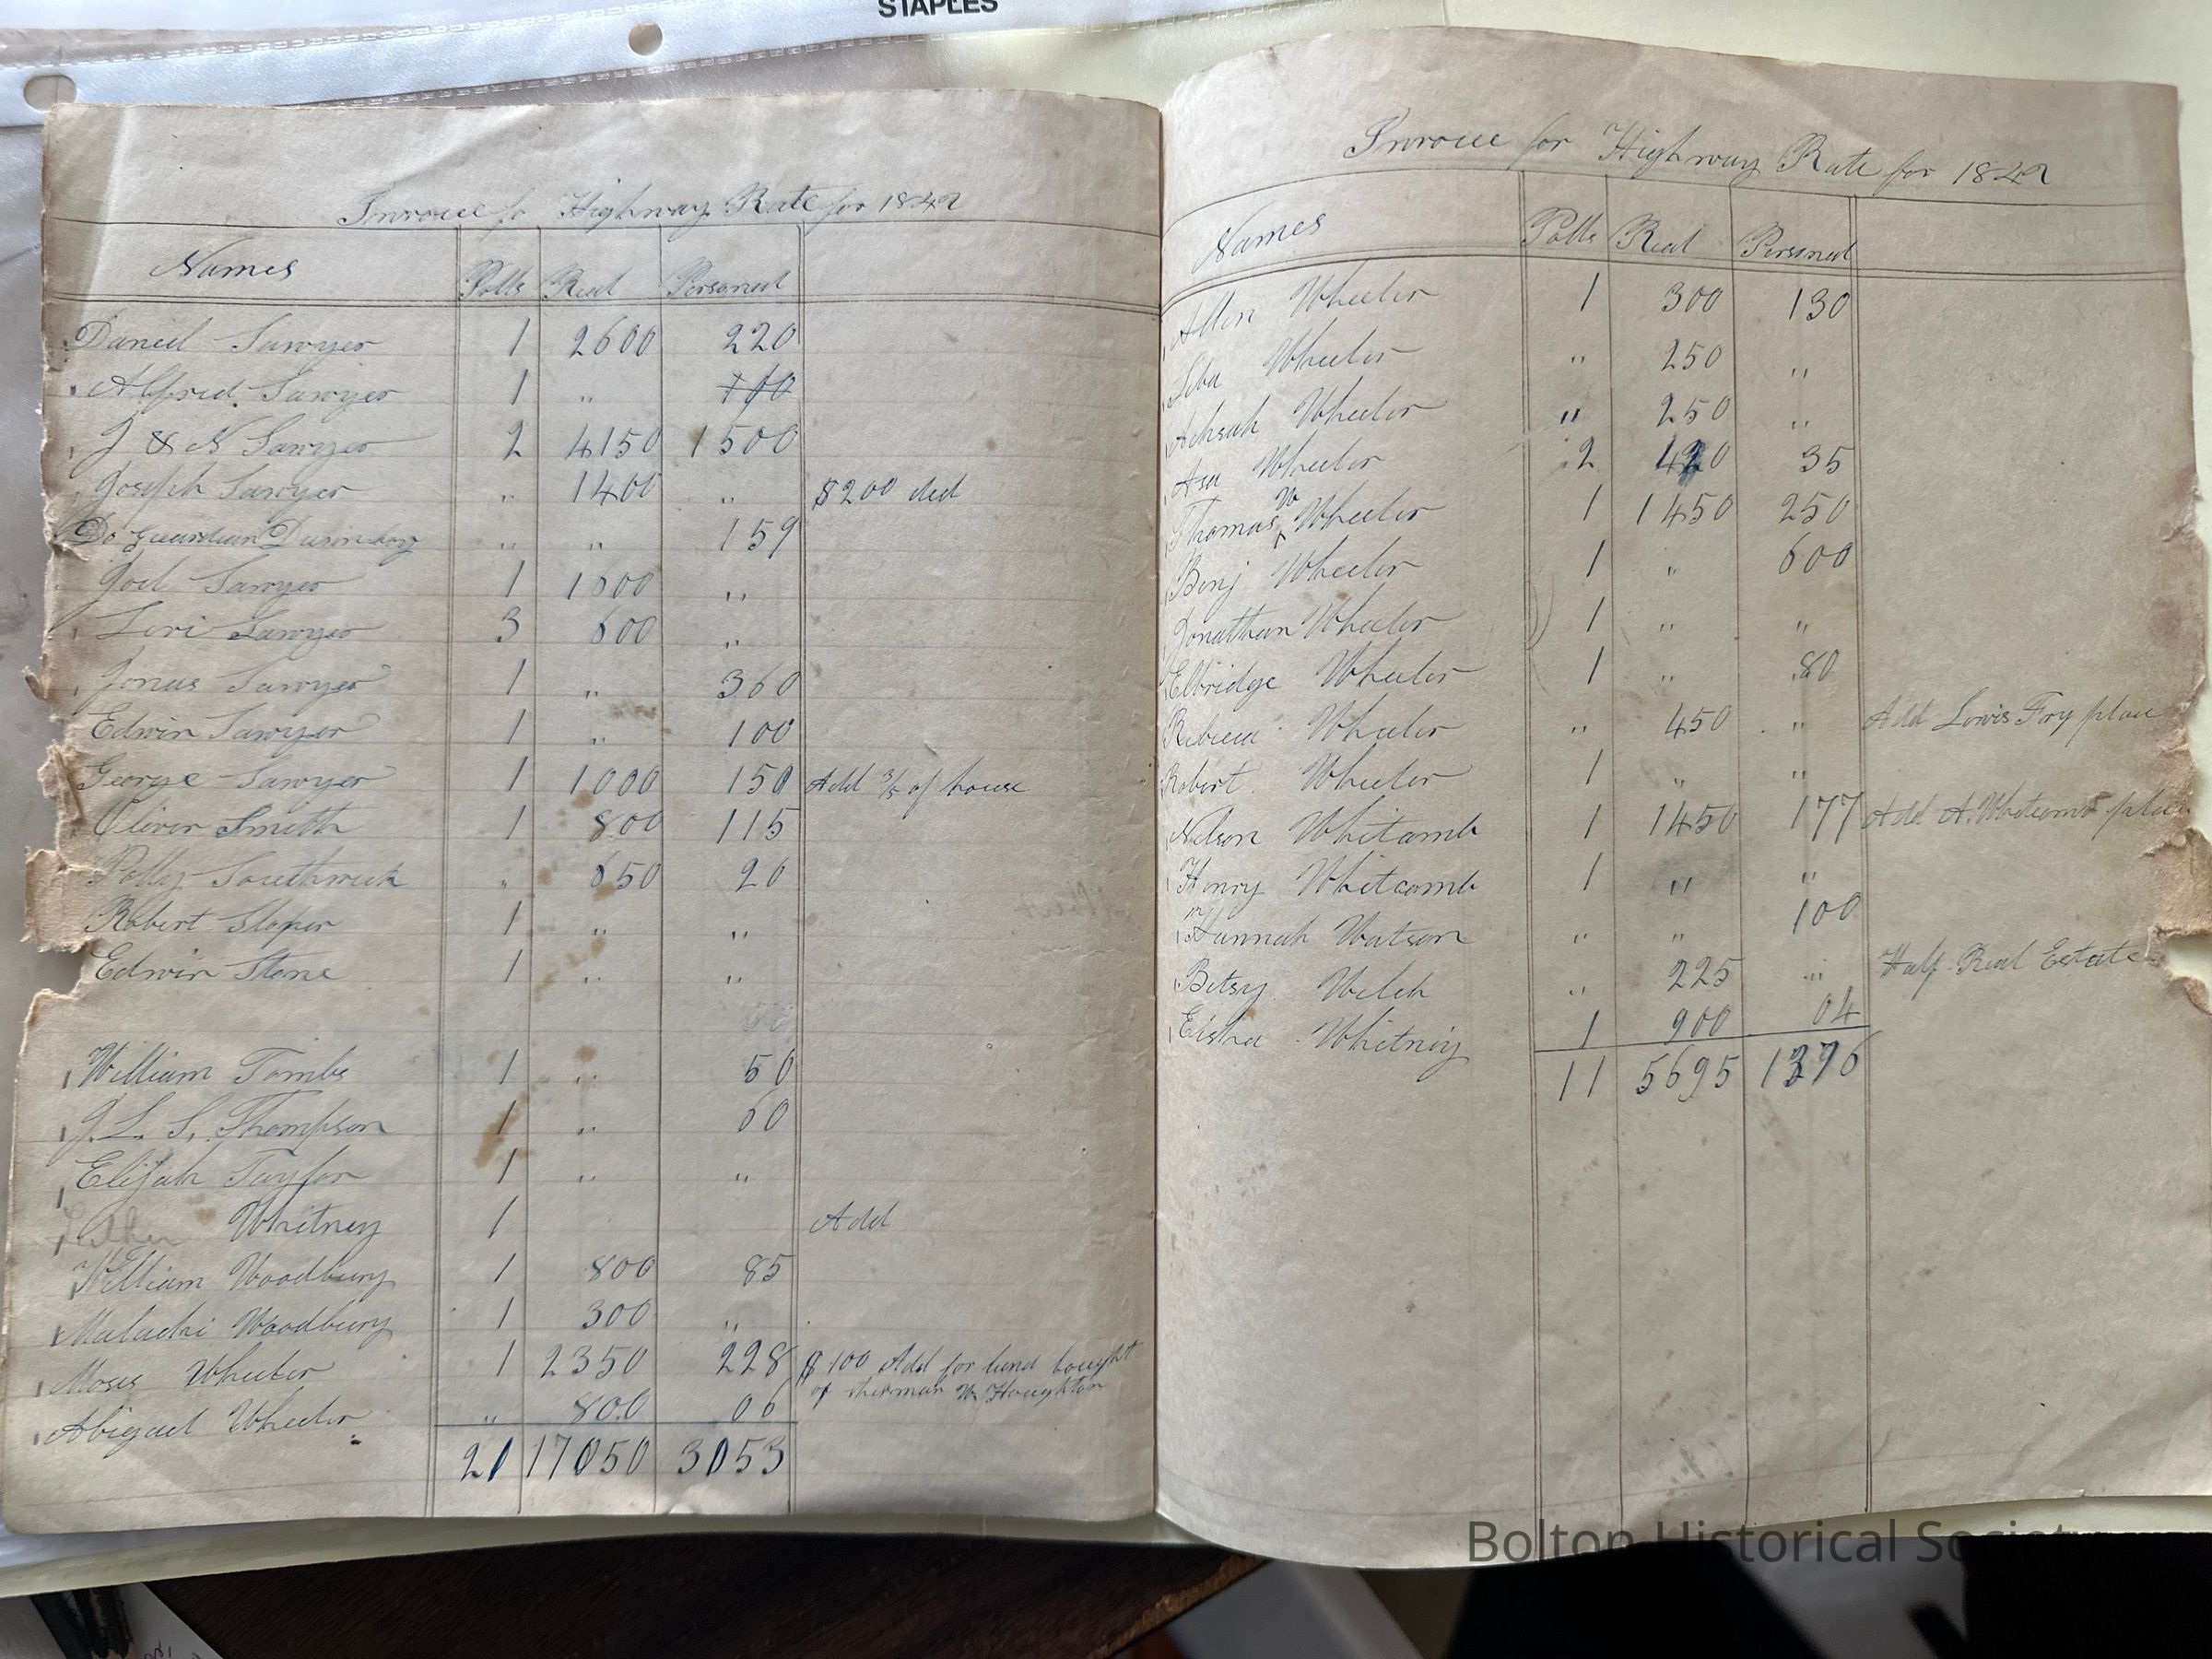 STAPLES
Invoice fo Highway Rate for 1842
Names Polls Real Personal
Daniel Sawyer 1 2600 220
Alfred Sawyer 1 " 100
J & N Sawyer 2 4150 1500
Joseph Sawyer " 1400 " $200 ded
Do Guardian " " 159
Joel Sawyer 1 1600 "
Levi Sawyer 3 600 "
Jonas Sawyer 1 " 360
Edwin Sawyer 1 " 100
George Sawyer 1 1000 150 Add 3/5 of house
Oliver Smith 1 800 115
Polly Southwick " 650 20
Robert Sloper 1 " "
Edwin Stone 1 " "
William Tombs 1 " 50
J. L. S. Thompson 1 " 60
Elijah Taylor 1 " "
Whitney 1 Add
William Woodbury 1 800 85
Malachi Woodbury 1 300 "
Moses Wheeler 1 2350 228 $100 Add for land bought
of Sherman W Houghton
Abigael Wheeler " 800 06
20 17050 3053
Invoice for Highway Rate for 1842
Names Polls Real Personal
Allen Wheeler 1 300 130
Seba Wheeler " 250 "
Achsah Wheeler " 250 "
Asa Wheeler 2 420 35
Thomas W Wheeler 1 1450 250
Benj Wheeler 1 " 600
Jonathan Wheeler 1 " "
Elbridge Wheeler 1 " 80
Rebecca Wheeler " 450 " Add Lowis Fry place
Robert Wheeler 1 " "
Nelson Whitcomb 1 1450 177 Add A. Whitcomb place
Henry Whitcomb 1 " "
Hannah Watson " " 100
Betsy Welch " 225 " Half Real Estate
Elisha Whitney 1 900 04
11 5695 1376
Bolton Historical Society